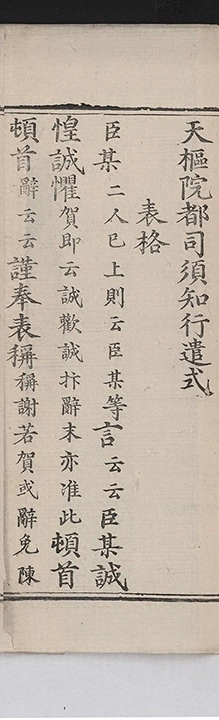 天樞院都司須知行遣式
表格
臣某二人已上則云臣某等言云云臣某誠
惶誠懼賀即云誠歡誠抃辭末亦准此頓首
頓首辭云云謹奉表稱稱謝若賀或辭免陳